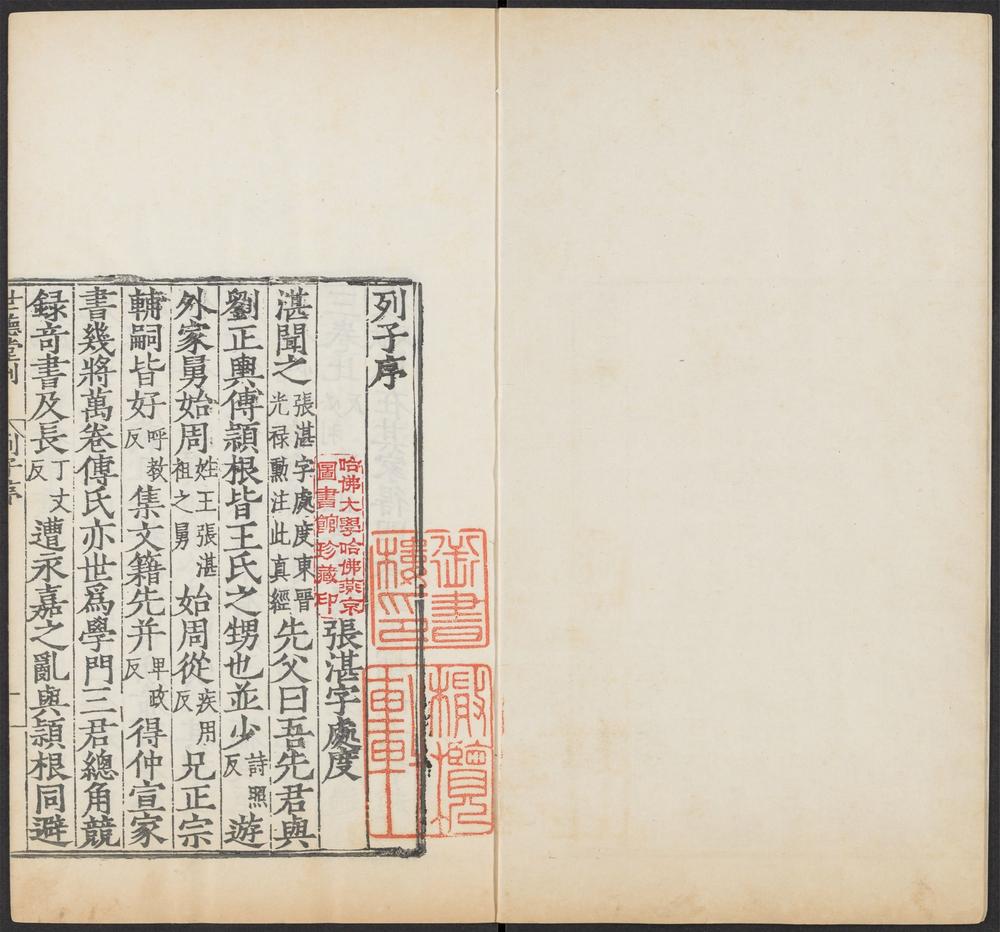 列子序
張湛字處度
湛聞之張湛字處度東晉光禄勳注此真經先父曰吾先君與
劉正輿傅穎根皆王氏之甥也並少詩照反遊
外家舅始周姓王張湛祖之舅始周從疾用反兄正宗
輔嗣皆好呼教反集文籍先并卑政反得仲宣家
書幾將萬卷傅氏亦世爲學門三君總角競
録竒書及長丁丈反遭永嘉之亂與穎根同避
世德堂刊
列子序
一
哈佛大學哈佛燕京
圖書館珍藏印
御書
樓印